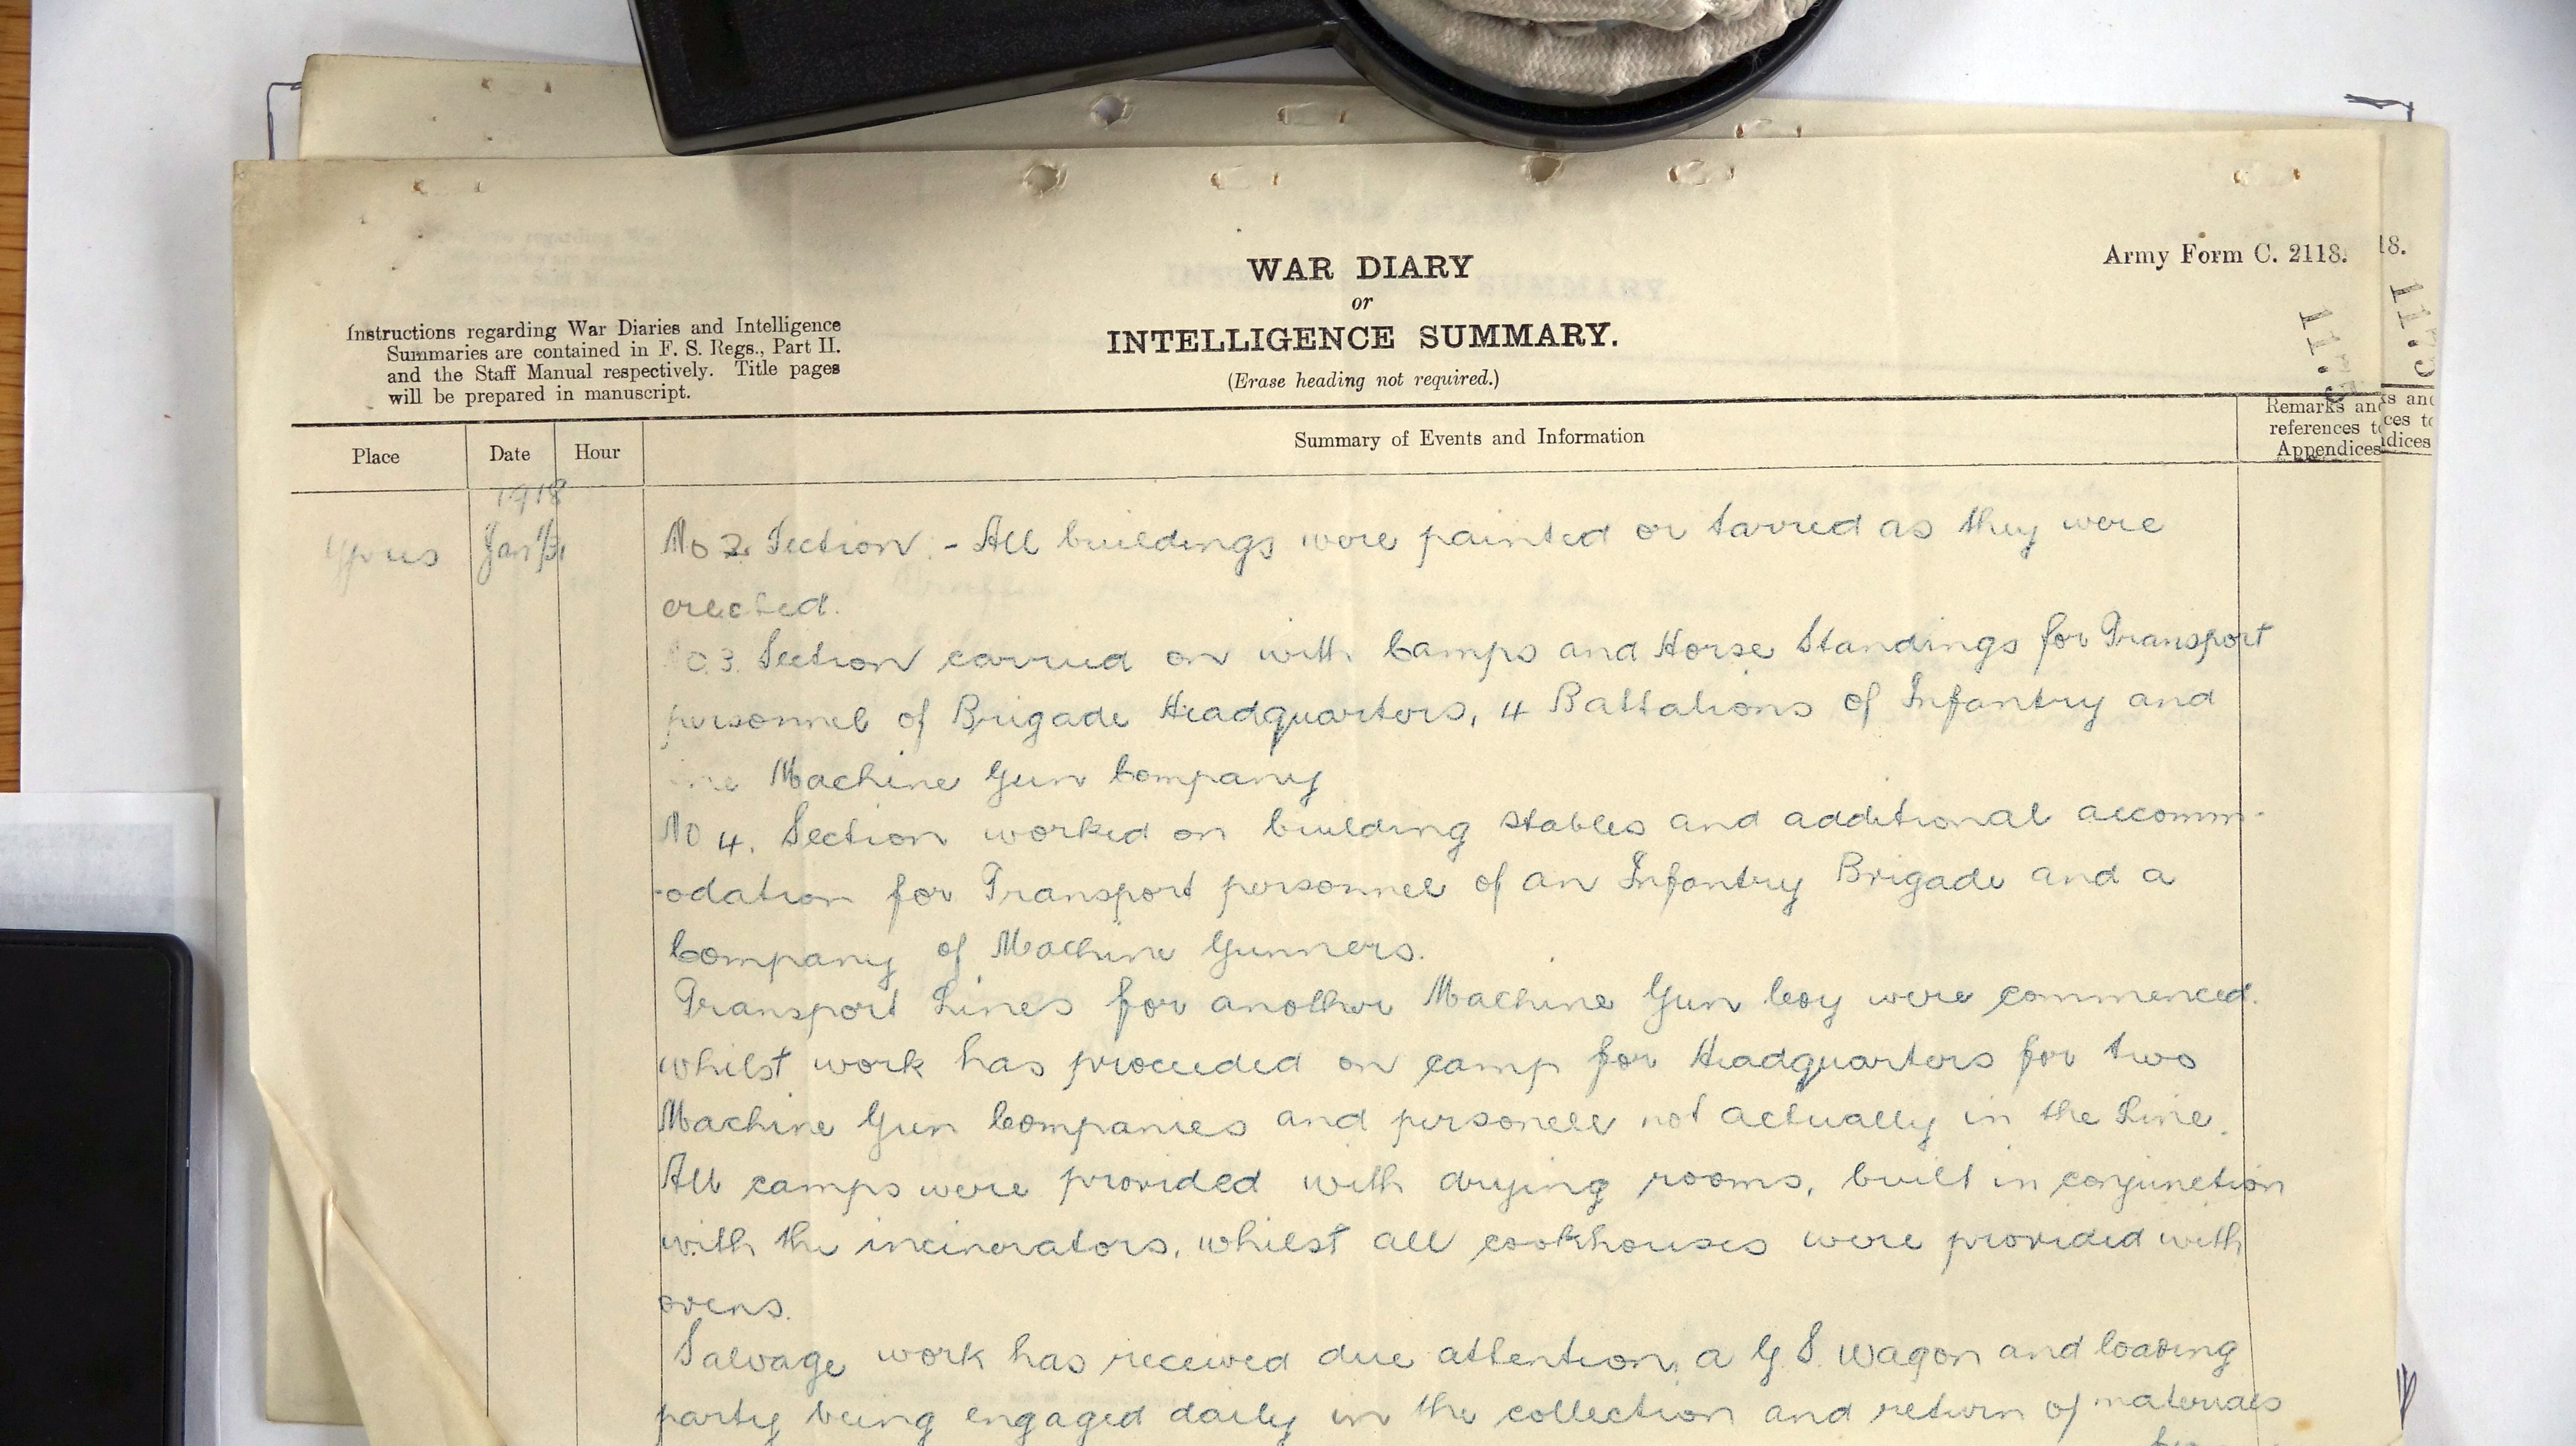 Army Form C. 2118.
18.
WAR DIARY
or
INTELLIGENCE SUMMARY.
(Erase heading not required.)
Instructions regarding War Diaries and Intelligence
Summaries are contained in F. S. Regs., Part II.
and the Staff Manual respectively. Title pages
will be prepared in manuscript.
Place
Date
Hour
Summary of Events and Information
Remarks and
references to
Appendices
1918
Ypres
Jan'/31
No 2 Section :- All buildings were painted or tarred as they were
erected.
No. 3. Section carried on with Camps and Horse Standings for Transport
personnel of Brigade Headquarters, 4 Battalions of Infantry and
one Machine Gun Company
No 4. Section worked on building stables and additional accomm-
-odation for Transport personnel of an Infantry Brigade and a
Company of Machine Gunners.
Transport Lines for another Machine Gun Coy were commenced.
whilst work has proceeded on camp for Headquarters for two
Machine Gun Companies and personell not actually in the Line.
All camps were provided with drying rooms, built in conjunction
with the incinerators, whilst all cookhouses were provided with
ovens.
Salvage work has received due attention, a G.S. Wagon and loading
party being engaged daily in the collection and return of materials